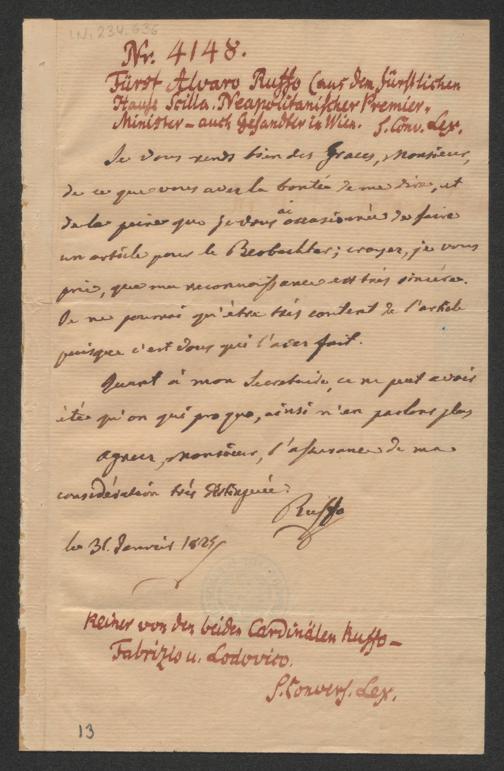 I.N. 234.636
Nr. 4148.
Fürst Alvaro Ruffo (aus dem fürstlichen
Hause Scilla. Neapolitanischer Premier-
Minister – auch Gesandter in Wien. S. Conv. Lex.
Je vous rends bien des Graces, Monsieur,
de ce que vous avez la bonté de me dire, et
de la peine que je vous ai occasionnée de faire
un article pour le Beobachter; croyez, je vous
prie, que ma reconnaissance est très sincère.
Je ne pourrai qu'être très content de l'article
puisque c'est vous qui l'avez fait.
Quant à mon Secretaire, ce ne peut avoir
été qu'un qui pro quo, ainsi n'en parlons plus
Agréez, Monsieur, l'assurance de ma
considération très distinguée.
Ruffo
le 31. Janvier 1825
Keiner von den beiden Cardinälen Ruffo –
Fabrizio u. Lodovico.
S. Convers. Lex.
13